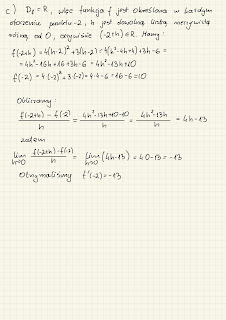 c) D_f = R, więc funkcja f jest określona w każdym
otoczeniu punktu -2, h jest dowolną liczbą rzeczywistą
różną od 0, oczywiście (-2+h) ∈ R. Mamy:
f(-2+h) = 4(h-2)² + 3(h-2) = 4(h²-4h+4) + 3h - 6 =
= 4h² - 16h + 16 + 3h - 6 = 4h² - 13h + 10
f(-2) = 4·(-2)² + 3·(-2) = 4·4 - 6 = 16 - 6 = 10
Obliczamy:
\frac{f(-2+h) - f(-2)}{h} = \frac{4h² - 13h + 10 - 10}{h} = \frac{4h² - 13h}{h} = 4h - 13
zatem
\lim_{h→0} \frac{f(-2+h) - f(-2)}{h} = \lim_{h→0} (4h - 13) = 4·0 - 13 = -13
Otrzymaliśmy f'(-2) = -13